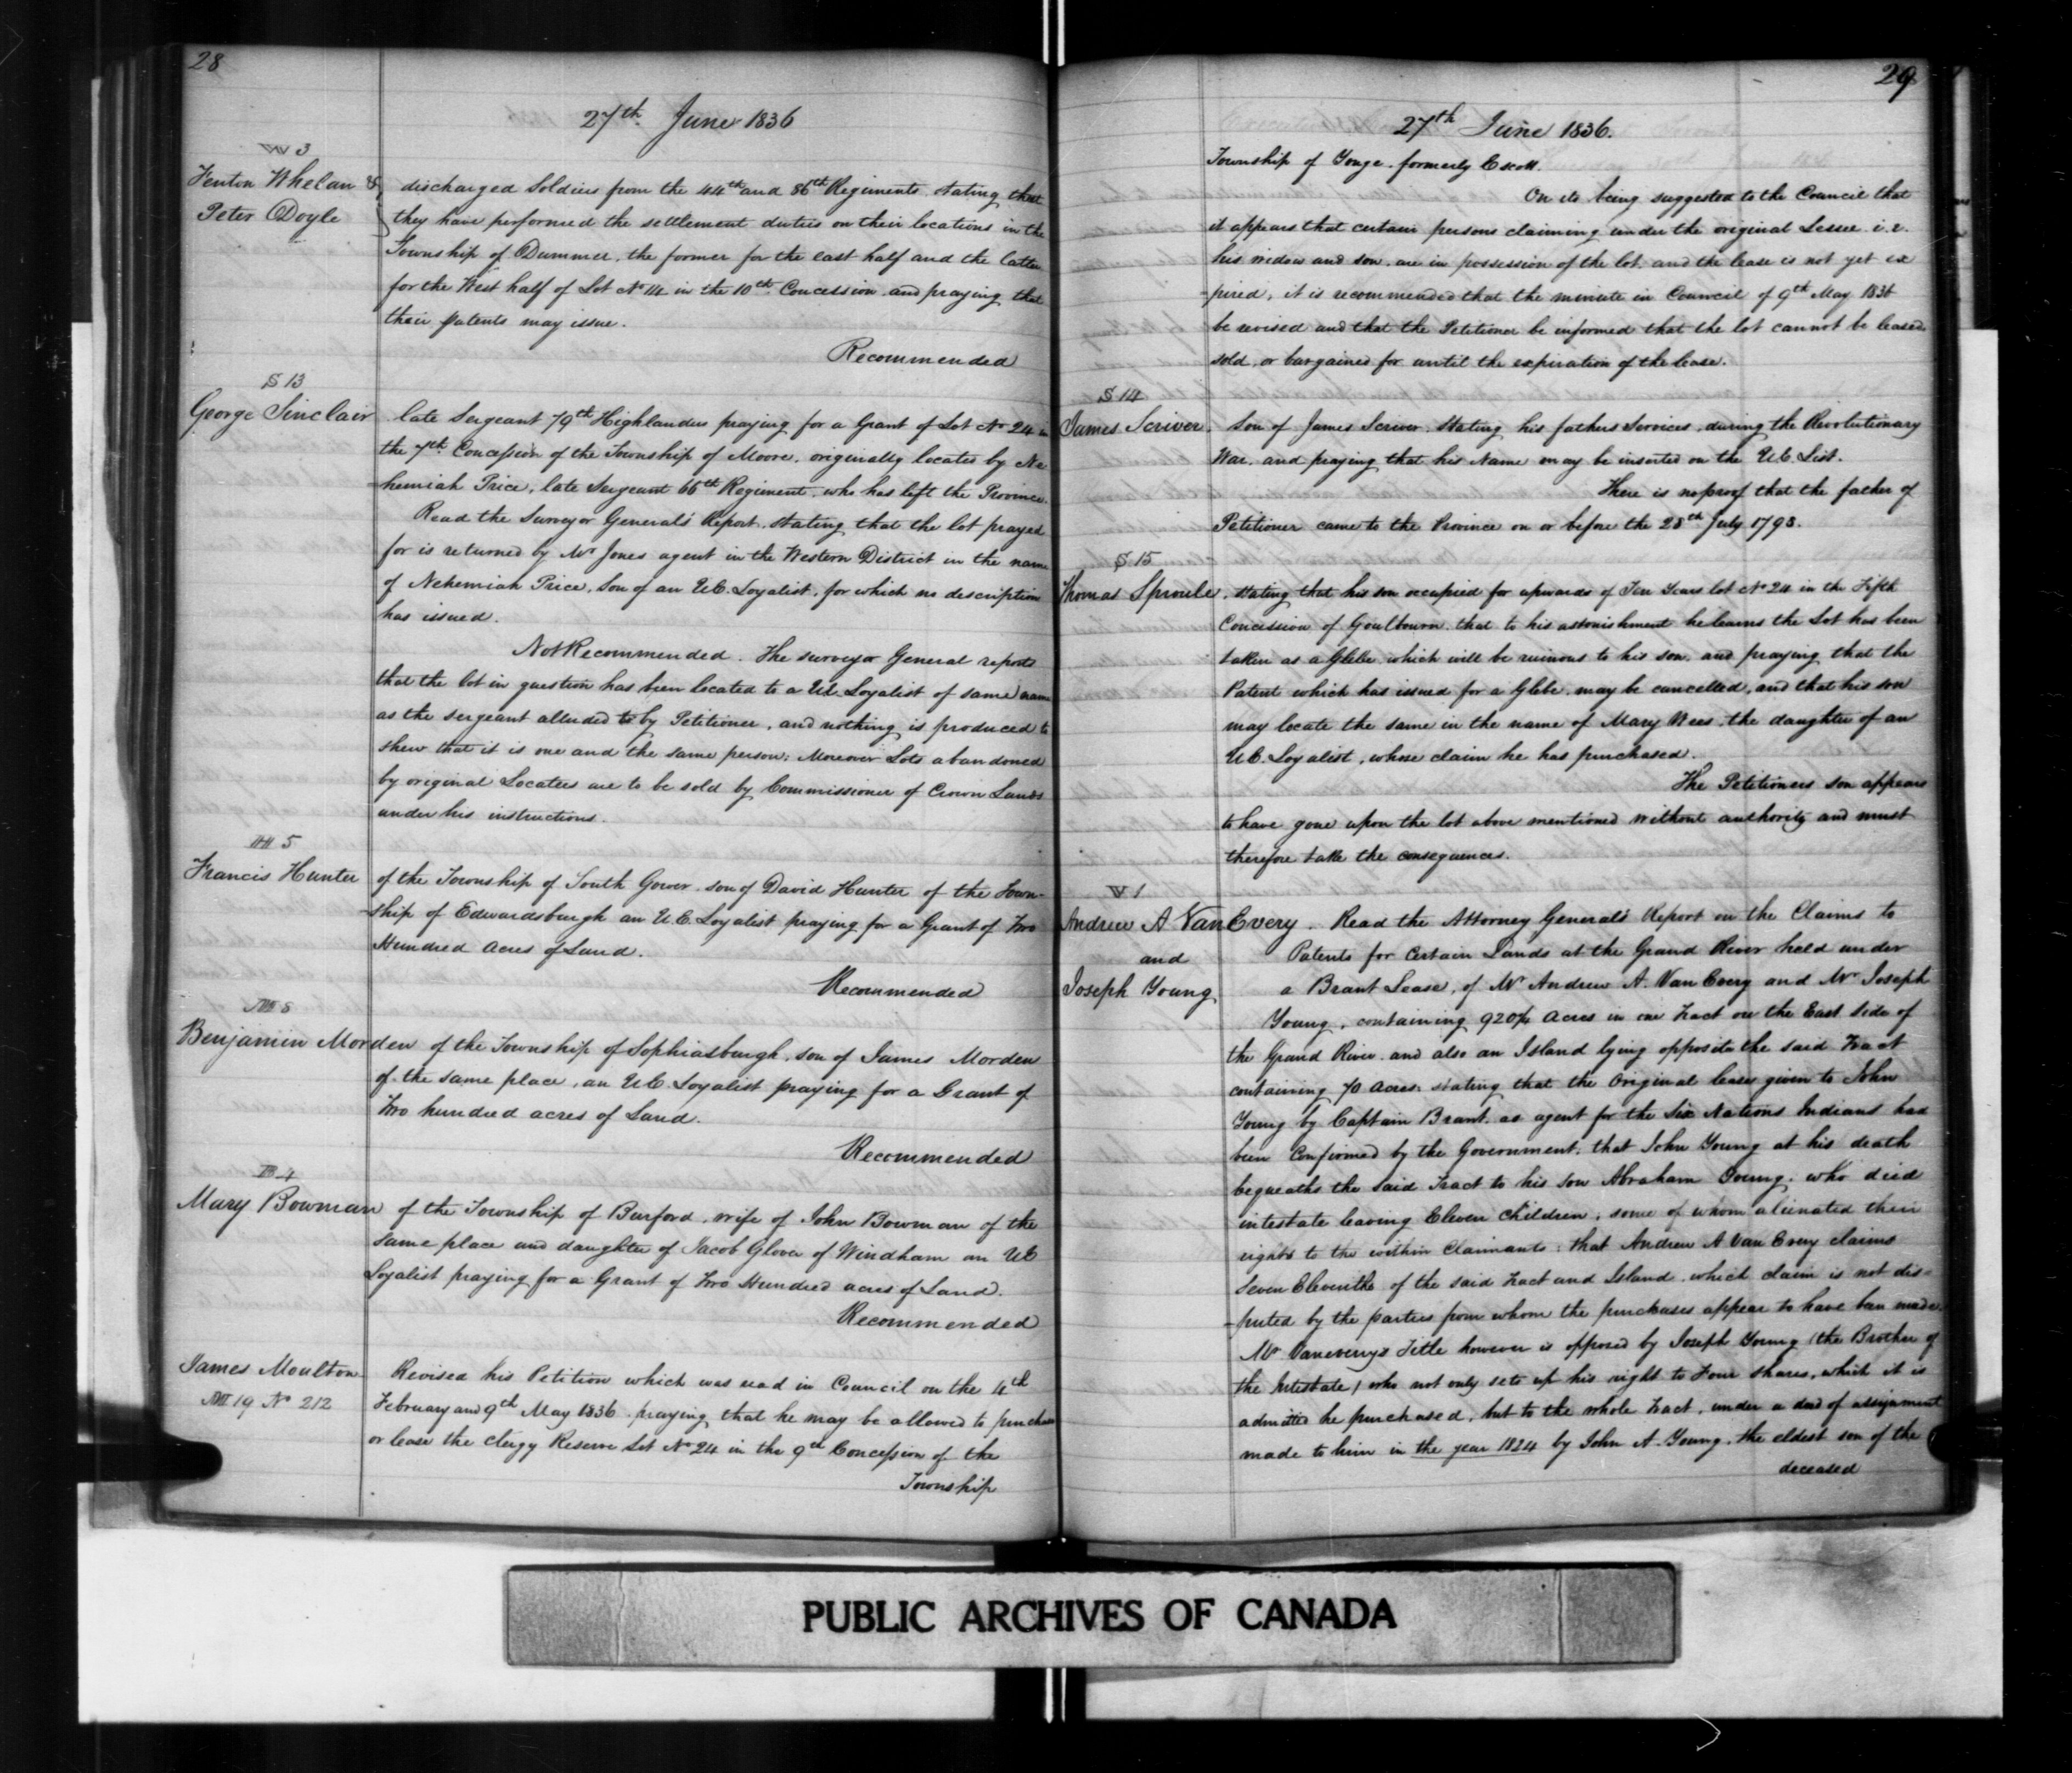 28
27th June 1836
W 3
Fenton Whelan &
Peter Doyle
discharged Soldiers from the 44th and 86th Regiments, stating that
they have performed the settlement duties on their locations in the
Township of Dummer, the former for the east half and the latter
for the West half of Lot No 14 in the 10th Concession and praying that
their patents may issue.
Recommended
S 13
George Sinclair
late Sergeant 79th Highlanders praying for a Grant of Lot No 24 in
the 7th Concession of the Township of Moore, originally located by Ne
hemiah Price, late Sergeant 66th Regiment, who has left the Province.
Read the Surveyor General's Report, stating that the lot prayed
for is returned by Mr Jones agent in the Western District in the name
of Nehemiah Price, Son of an U.E. Loyalist, for which no description
has issued.
Not Recommended. The surveyor General reports
that the lot in question has been located to a UE Loyalist of same name
as the sergeant alluded to by Petitioner, and nothing is produced to
shew that it is one and the same person; Moreover Lots abandoned
by original Locatees are to be sold by Commissioner of Crown Lands
under his instructions.
H 5
Francis Hunter
of the Township of South Gower, son of David Hunter of the Town-
-ship of Edwardsburgh an U.E. Loyalist praying for a Grant of Two
Hundred acres of Land.
Recommended
M 8
Benjamin Morden of the Township of Sophiasburgh, son of James Morden
of the same place, an U.E. Loyalist praying for a Grant of
Two hundred acres of Land.
Recommended
B 4
Mary Bowman of the Township of Burford, wife of John Bowman of the
same place and daughter of Jacob Glover of Windham an UE
Loyalist praying for a Grant of Two Hundred acres of Land.
Recommended
James Moulton
M 19 No 212
Revised his Petition which was read in Council on the 4th
February and 9th May 1836, praying that he may be allowed to purchase
or lease the Clergy Reserve Lot No 24 in the 9th Concession of the
Township
29
27th June 1836.
Township of Yonge, formerly Escott.
On its being suggested to the Council that
it appears that certain persons claiming under the original Lessee i.e.
his widow and son, are in possession of the lot, and the lease is not yet ex
-pired, it is recommended that the minute in Council of 9th May 1836
be revised and that the Petitioner be informed that the lot cannot be leased
sold, or bargained for until the expiration of the lease.
S 14
James Scriver.
Son of James Scriver, Stating his fathers Services, during the Revolutionary
War, and praying that his Name may be inserted on the U.E. List.
There is no proof that the father of
Petitioner came to the Province on or before the 28th July 1793.
S 15
Thomas Sproule,
stating that his son occupied for upwards of Ten Years lot No 24 in the Fifth
Concession of Goulbourn, that to his astonishment he learns the Lot has been
taken as a Glebe, which will be ruinous to his son, and praying that the
Patent which has issued for a Glebe, may be cancelled, and that his son
may locate the same in the name of Mary Wees, the daughter of an
U.E. Loyalist, whose claim he has purchased.
The Petitioners son appears
to have gone upon the lot above mentioned without authority and must
therefore take the consequences.
V 1
Andrew A Van Every. Read the Attorney General's Report on the Claims to
and
Joseph Young
Patents for Certain Lands at the Grand River held under
a Brant Lease, of Mr Andrew A. Van Every and Mr Joseph
Young, containing 920¾ Acres in one Tract on the East Side of
the Grand River, and also an Island lying opposite the said Tract
containing 70 Acres: stating that the Original lease given to John
Young by Captain Brant, as agent for the Six Nations Indians had
been Confirmed by the Government, that John Young at his death
bequeaths the said Tract to his son Abraham Young, who died
intestate leaving Eleven Children; some of whom alienated their
rights to the within Claimants: that Andrew A Van Every claims
Seven Elevenths of the said Tract and Island, which claim is not dis-
-puted by the parties from whom the purchases appear to have been made.
Mr Vaneverys Title however is opposed by Joseph Young (the Brother of
the Intestate) who not only sets up his right to Four Shares, which it is
admitted he purchased, but to the whole Tract, under a deed of assignment
made to him in the year 1824 by John A. Young, the eldest son of the
deceased
PUBLIC ARCHIVES OF CANADA